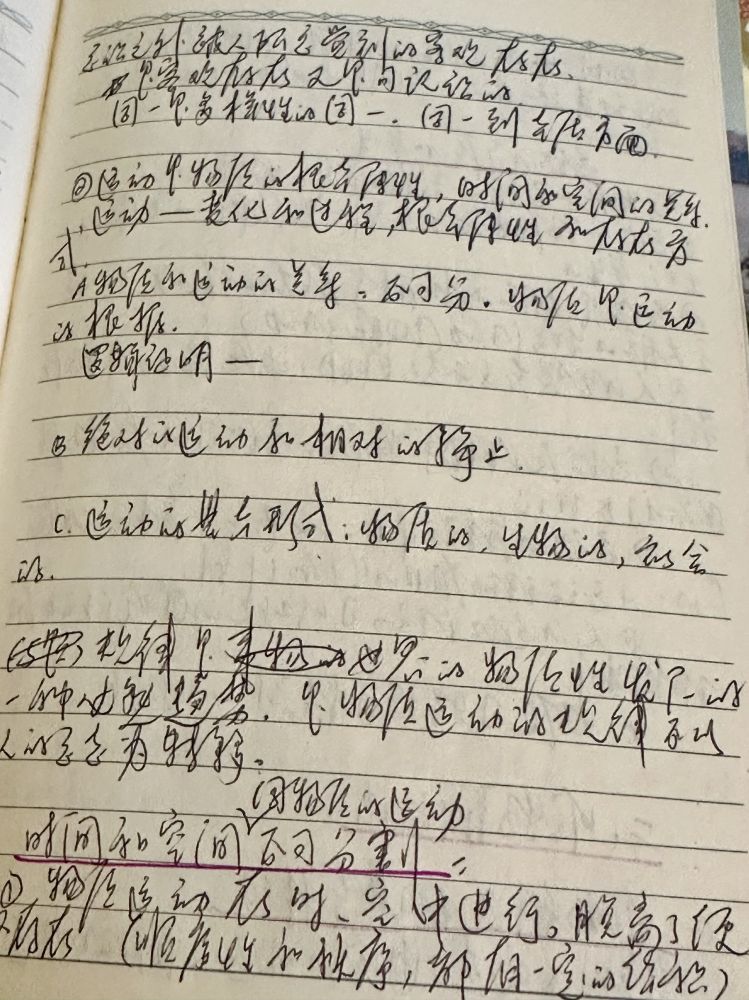 意识之外, 被人所感觉到的客观存在。
是客观存在又是可认识的
同一是多样性的同一。同一到本质方面。
② 运动是物质的根本属性, 时间和空间的关系。
运动——变化和过程, 根本属性和存在方
式。
A 物质和运动的关系: 不可分。物质是运动
的根据。
逻辑证明——
B 绝对的运动和相对的静止。
C. 运动的基本形式: 物质的, 生物的, 社会
的.
规律是 世界的物质性发 的
一种必 趋势。是物质运动的规律不以
人的意志为转移。
同物质的运动
时间和空间不可分割:
① 物质运动在时、空中进行。脱离了便
不存在 (顺序性和秩序, 都有一定的 )